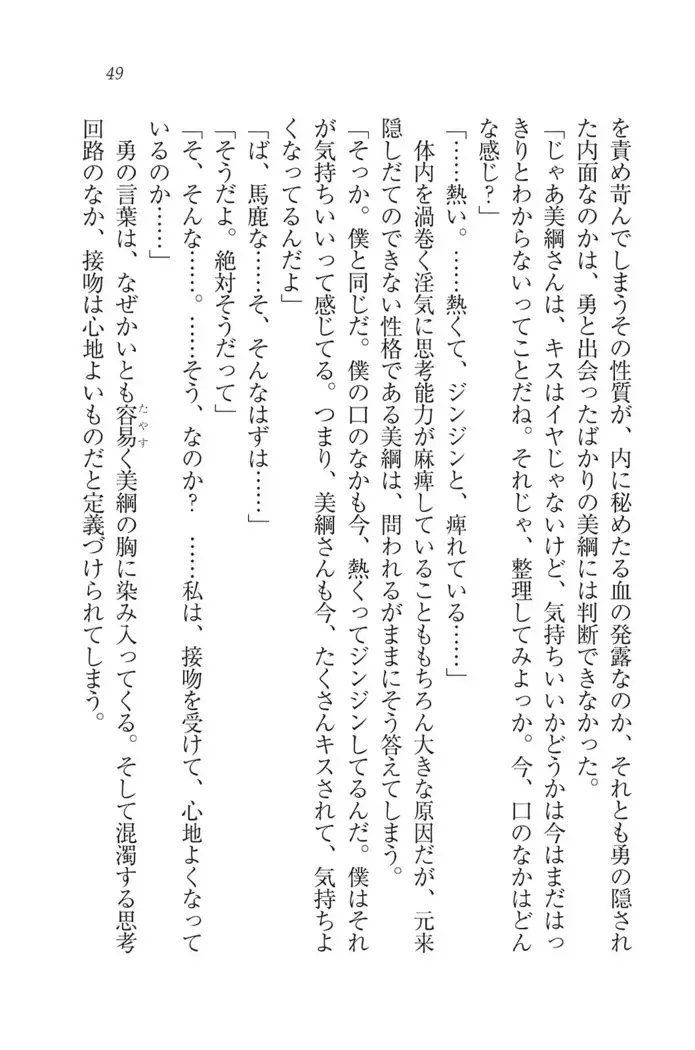 49
を責め苛んでしまうその性質が、内に秘めたる血の発露なのか、それとも勇の隠され
た内面なのかは、勇と出会ったばかりの美綱には判断できなかった。
「じゃあ美綱さんは、キスはイヤじゃないけど、気持ちいいかどうかは今はまだはっ
きりとわからないってことだね。それじゃ、整理してみよっか。今、口のなかはどん
な感じ？」
「……熱い。……熱くて、ジンジンと、痺れている……」
体内を渦巻く淫気に思考能力が麻痺していることももちろん大きな原因だが、元来
隠しだてのできない性格である美綱は、問われるがままにそう答えてしまう。
「そっか。僕と同じだ。僕の口のなかも今、熱くってジンジンしてるんだ。僕はそれ
が気持ちいいって感じてる。つまり、美綱さんも今、たくさんキスされて、気持ちよ
くなってるんだよ」
「ば、馬鹿な……そ、そんなはずは……」
「そうだよ。絶対そうだって」
「そ、そんな……。……そう、なのか？　……私は、接吻を受けて、心地よくなって
いるのか……」
勇の言葉は、なぜかいとも容易く美綱の胸に染み入ってくる。そして混濁する思考
たやす
回路のなか、接吻は心地よいものだと定義づけられてしまう。